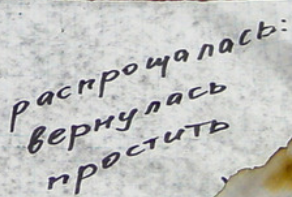 распрощалась:
вернулась
простить